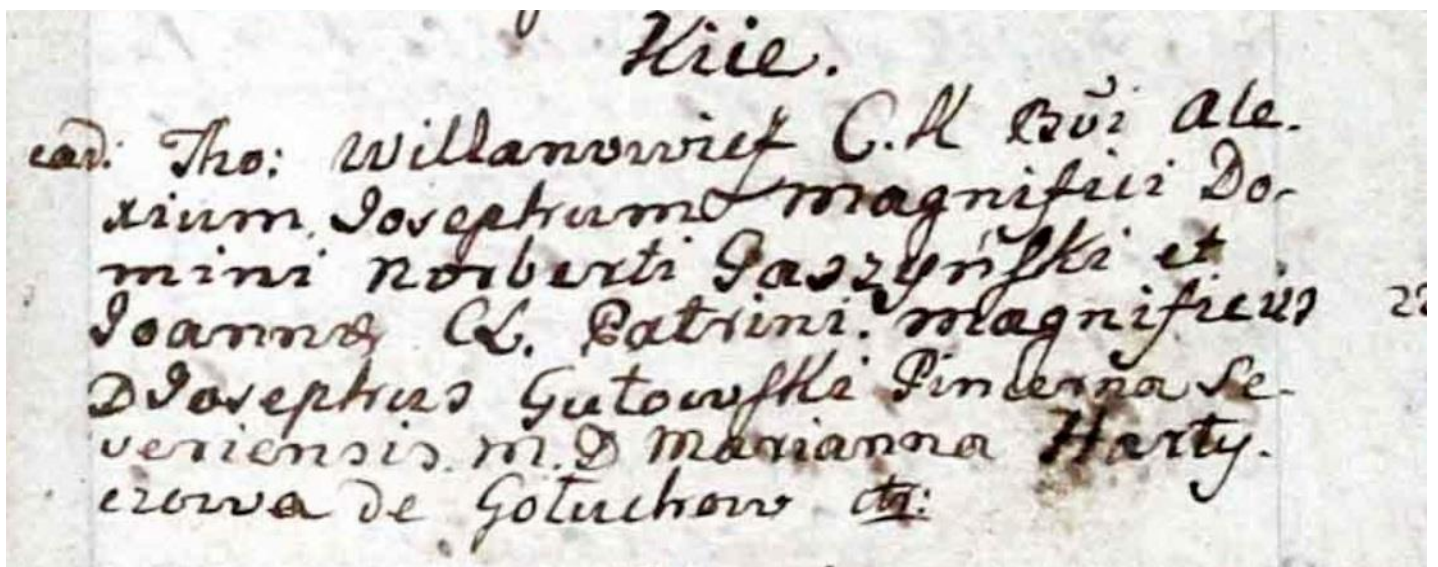 Kiie.
ead: Tho: Willanowicz C. K Bũi Ale-
xium Josephum Magnifici Do-
mini Norberti Paszyńſki et
Joannæ CL. Patrini. Magnificus 22
D Josephus Gutowſki Pincerna Se-
veriensis. M. D Marianna Harty-
czowa de Gołuchow